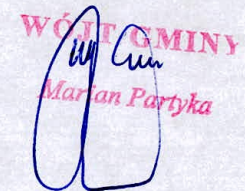 WÓJT GMINY
Marian Partyka